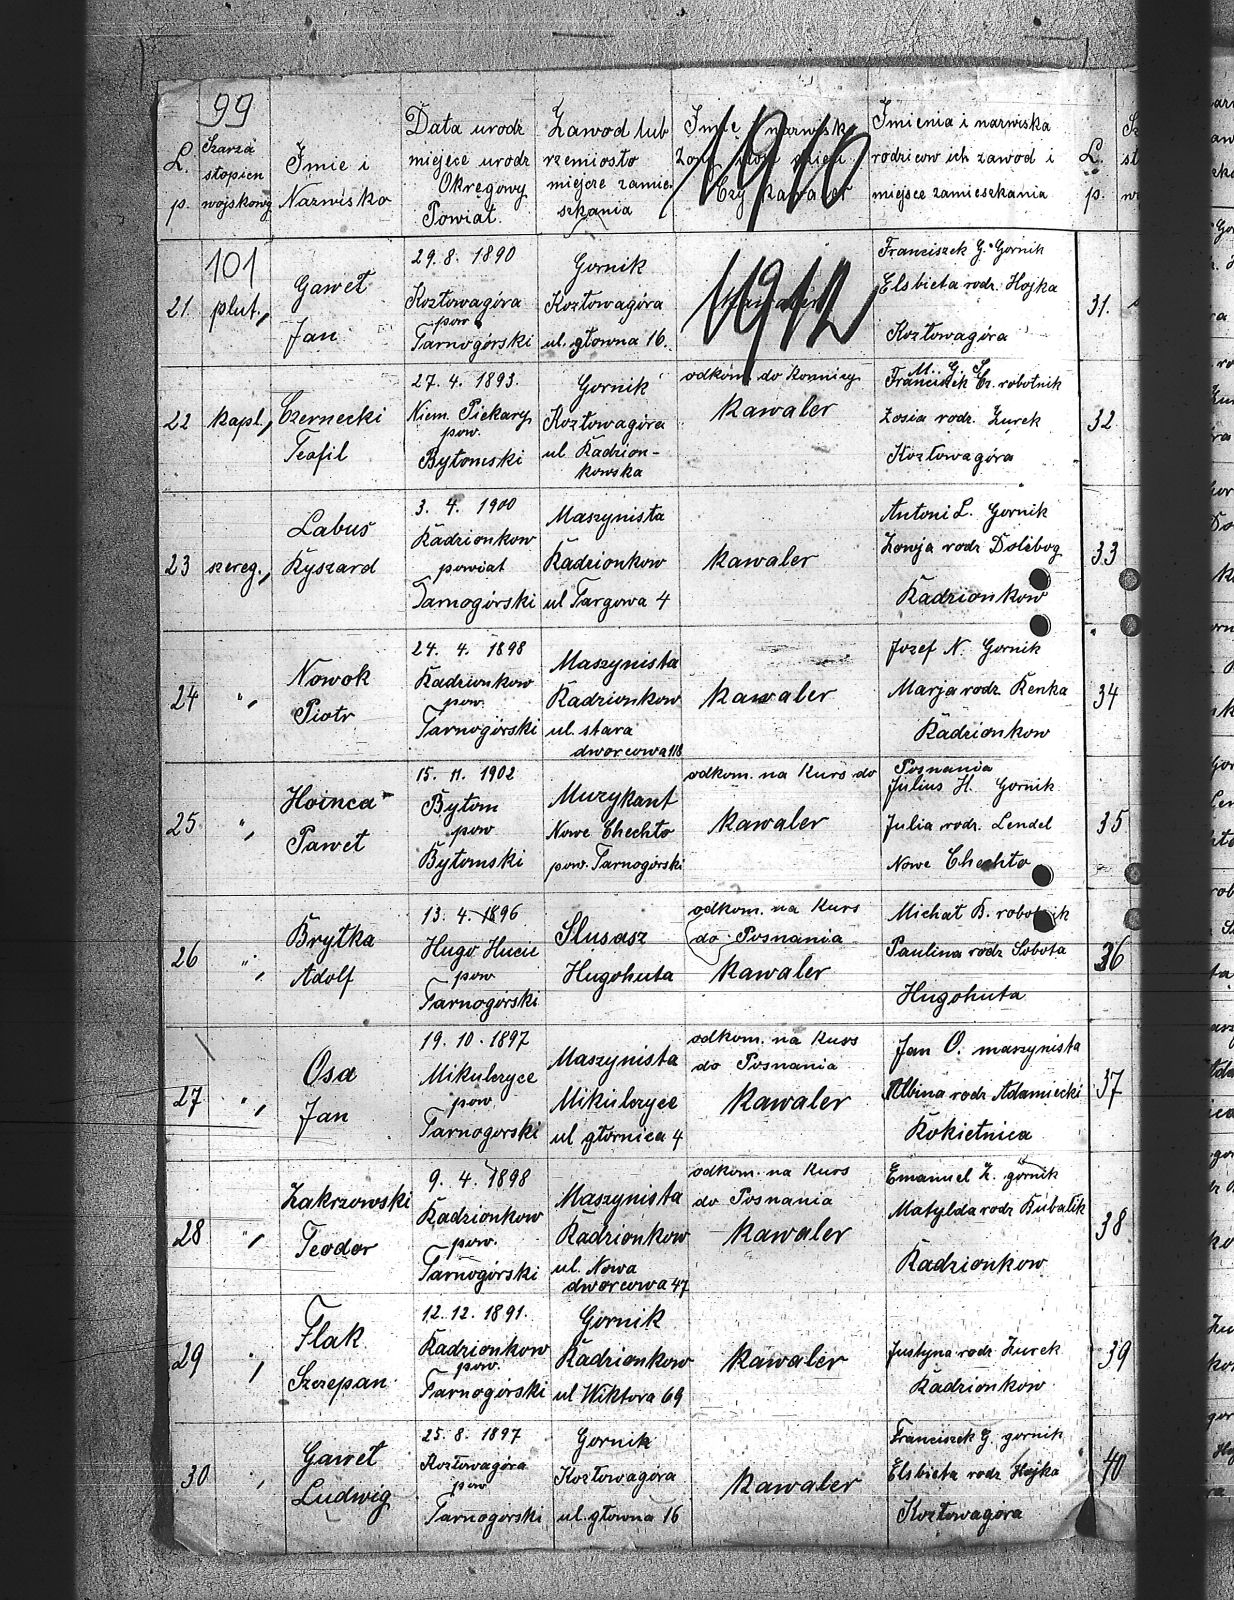 99
L. p.
Szarża stopien wojskowy
Imie i Nazwisko
Data urodz miejsce urodz Okręgowy Powiat.
Zawod lub rzemiosto miejsce zamieszkania
Imie i nazwisk Czy kawaler
1910
Imienia i nazwiska rodzicow ich zawod i miejsce zamieszkania
L. p.
101
21 plut.,
Gawet
Jan
29. 8. 1890
Kozłowagóra
pow
Tarnogórski
Gornik
Kozłowagóra
ul. głowna 16.
1912
Franciszek G. Gornik
Elsbieta rodz. Hojka
Kozłowagóra
31.
22 kapl.,
Czernecki
Teofil
27. 4. 1893.
Niem. Piekary
pow.
Bytomski
Gornik
Kozłowagóra
ul Radzion-
kowska
odkom. do Komnizy M. G. S.
kawaler
Franciszek Cz. robotnik
Zosia rodz. Zurek
Kozłowagóra
32
23 szereg.,
Labus
Ryszard
3. 4. 1900
Radzionkow
powiat
Tarnogórski
Maszynista
Radzionkow
ul Targowa 4
kawaler
Antoni L. Gornik
Zowja rodz Dolibog
Radzionkow
33
24 " ,
Nowok
Piotr
24. 4. 1898
Radzionkow
pow.
Tarnogórski
Maszynista
Radzionkow
ul. stara
dworcowa 118
kawaler
Jozef N. Gornik
Marja rodz Renka
Radzionkow
34
25 " ,
Hoinca
Pawet
15. 11. 1902
Bytom
pow
Bytomski
Muzykant
Nowe Chechto
pow. Tarnogórski
odkom. na Kurs do Posnania
kawaler
Julius H. Gornik
Julia rodz. Lendel
Nowe Chechto
35
26 " ,
Brytka
Adolf
13. 4. 1896
Hugo Hucie
pow
Tarnogórski
Slusasz
Hugohuta
odkom. na Kurs
do Posnania
kawaler
Michat B. robotnik
Paulina rodz Sobota
Hugohuta
36
27 " ,
Osa
Jan
19. 10. 1897
Mikulczyce
pow
Tarnogorski
Maszynista
Mikulczyce
ul głornica 4
odkom. na Kurs
do Posnania
kawaler
Jan O. maszynista
Albina rodz Adamiecki
Rokietnica
37
28 " ,
Zakrzowski
Teodor
9. 4. 1898
Radzionkow
pow.
Tarnogórski
Maszynista
Radzionkow
ul. Nowa
dworcowa 47
odkom. na Kurs
do Posnania
kawaler
Emanuel Z. górnik
Matylda rodz Kubalik
Radzionkow
38
29 " ,
Flak
Szczepan
12. 12. 1891.
Radzionkow
pow.
Tarnogórski
Gornik
Radzionkow
ul Wiktora 69
kawaler
Justyna rodz Zurek
Radzionkow
39
30 " ,
Gawet
Ludwig
25. 8. 1897
Kozłowagóra
pow
Tarnogórski
Gornik
Kozłowagóra
ul. głowna 16
kawaler
Franciszek G. gornik
Elsbieta rodz Hojka
Kozłowagóra
40